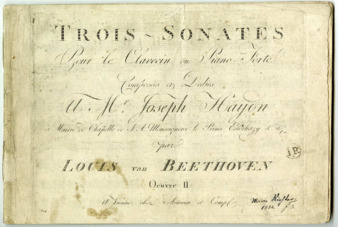 TROIS ~ SONATES
Pour le Clavecin ou Piano-Forte
Composées et Dediés
A Mr. Joseph Haydn
Maitre de Chapelle de S. A. Monseigneur le Prince Esterhazy &c &c
par
LOUIS van BEETHOVEN
Oeuvre II
A Vienne chez Artaria et Comp.